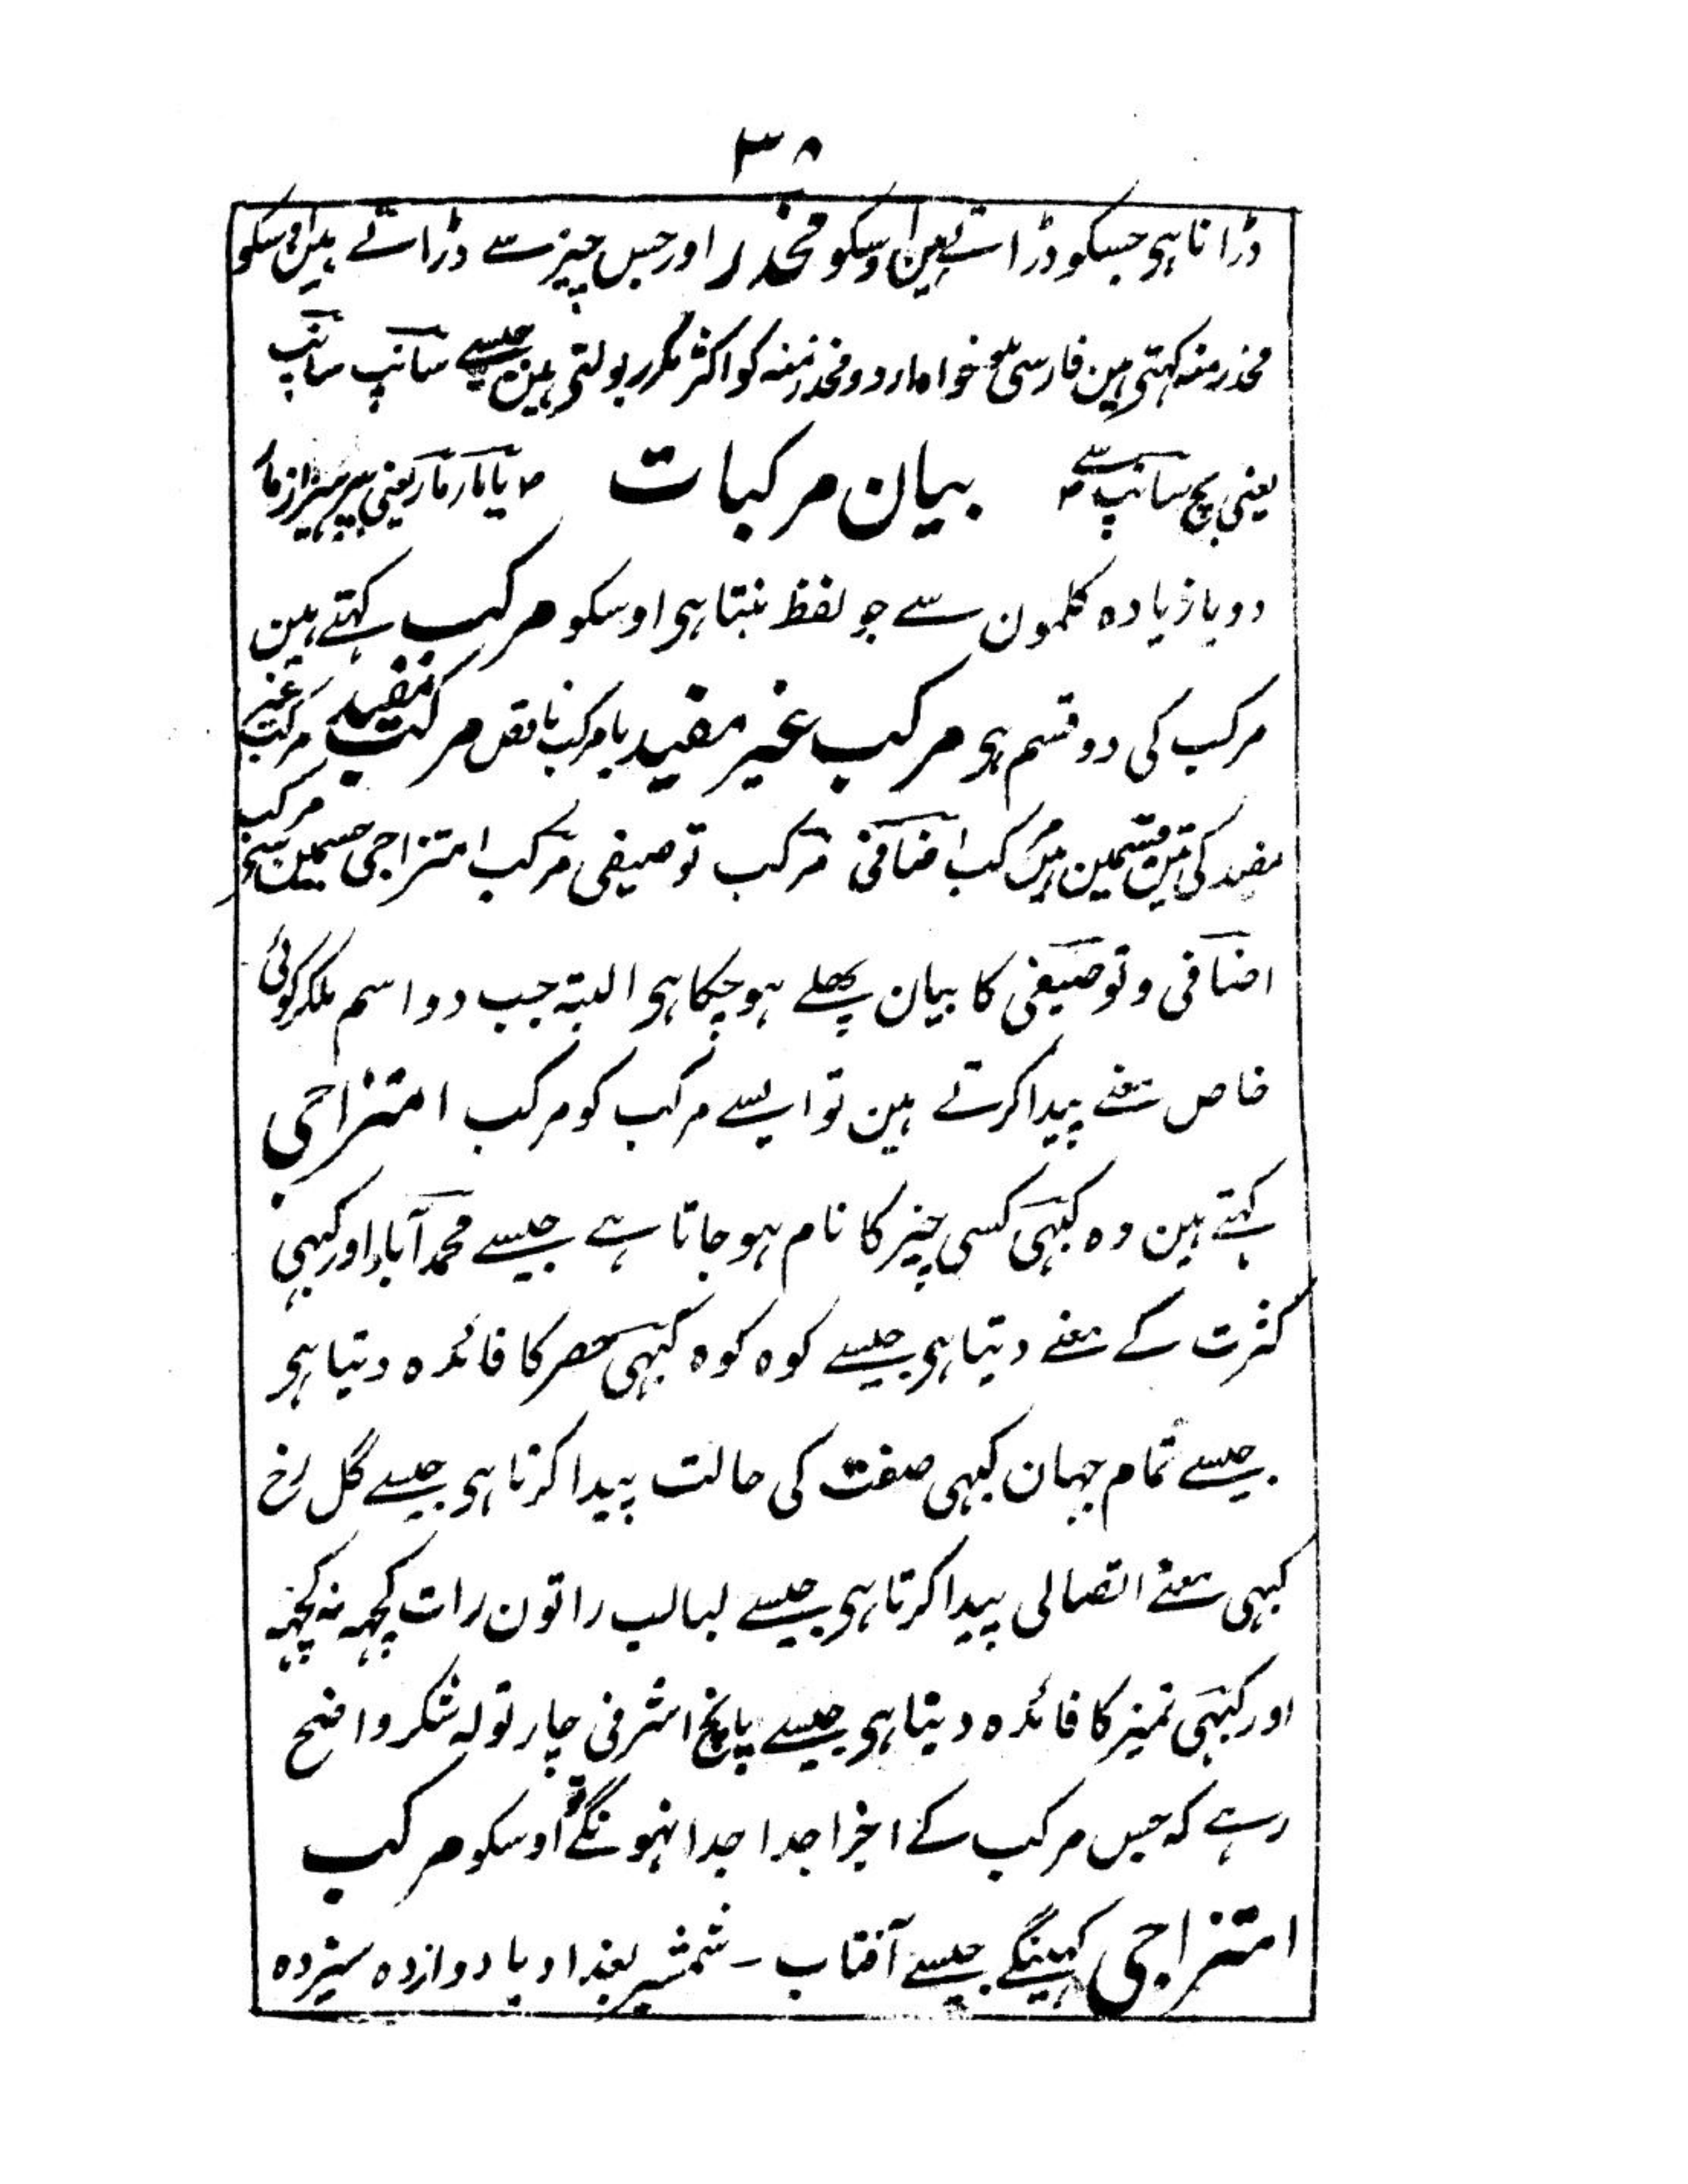 ۳۸
ڈرانا ہی جسکو ڈراتے ہین اوسکو محذر اور جس چیز سے ڈراتے ہین اوسکو
محذرمنہ کہتی ہین فارسی خواہ اردو محذرمنہ کو اکثر مکرر بولتی ہین جیسے سانپ سانپ
یعنی بچ سانپ سے بیان مرکبات یا مار مار یعنی بپرہیز از مار
دو یا زیادہ کلمون سے جو لفظ بنتا ہی اوسکو مرکب کہتے ہین
مرکب کی دو قسم ہی مرکب غیر مفید یا مرکب ناقص مرکب مفید مرکب غیر
مفید کی تین قسمین ہین مرکب اضافی مرکب توصیفی مرکب امتزاجی جسمین سے مرکب
اضافی و توصیفی کا بیان پہلے ہو چکا ہی البتہ جب دو اسم ملکر کوئی
خاص معنے پیدا کرتے ہین تو ایسے مرکب کو مرکب امتزاجی
کہتے ہین وہ کبہی کسی چیز کا نام ہو جاتا ہے جیسے محمد آباد اور کبہی
کثرت کے معنے دیتا ہی جیسے کوہ کوہ کبہی حصر کا فائدہ دیتا ہی
جیسے تمام جہان کبہی صفت کی حالت پیدا کرتا ہی جیسے گل رخ
کبہی معنے اتصالی پیدا کرتا ہی جیسے لبالب راتون رات کچہہ نہ کچہہ
اور کبہی تمیز کا فائدہ دیتا ہی جیسے پانچ اشرفی چار تولہ شکر واضح
رہے کہ جس مرکب کے اجزا جدا جدا نہونگے تو اوسکو مرکب
امتزاجی کہینگے جیسے آفتاب ۔ شمشیر بغداد یا دوازدہ سیزدہ